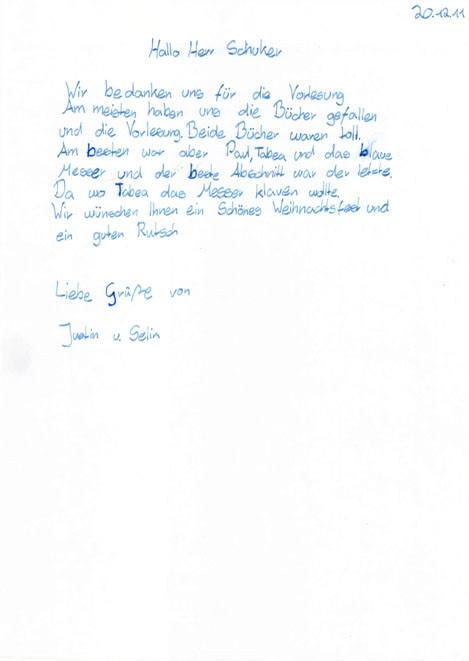 20.12.11
Hallo Herr Schuker
Wir bedanken uns für die Vorlesung
Am meisten haben uns die Bücher gefallen
und die Vorlesung. Beide Bücher waren toll.
Am besten war aber Paul, Tabea und das blaue
Messer und der beste Abschnitt war der letzte.
Da wo Tabea das Messer klauen wollte.
Wir wünschen Ihnen ein Schönes Weihnachtsfest und
ein guten Rutsch
Liebe Grüße von
Justin u. Selin